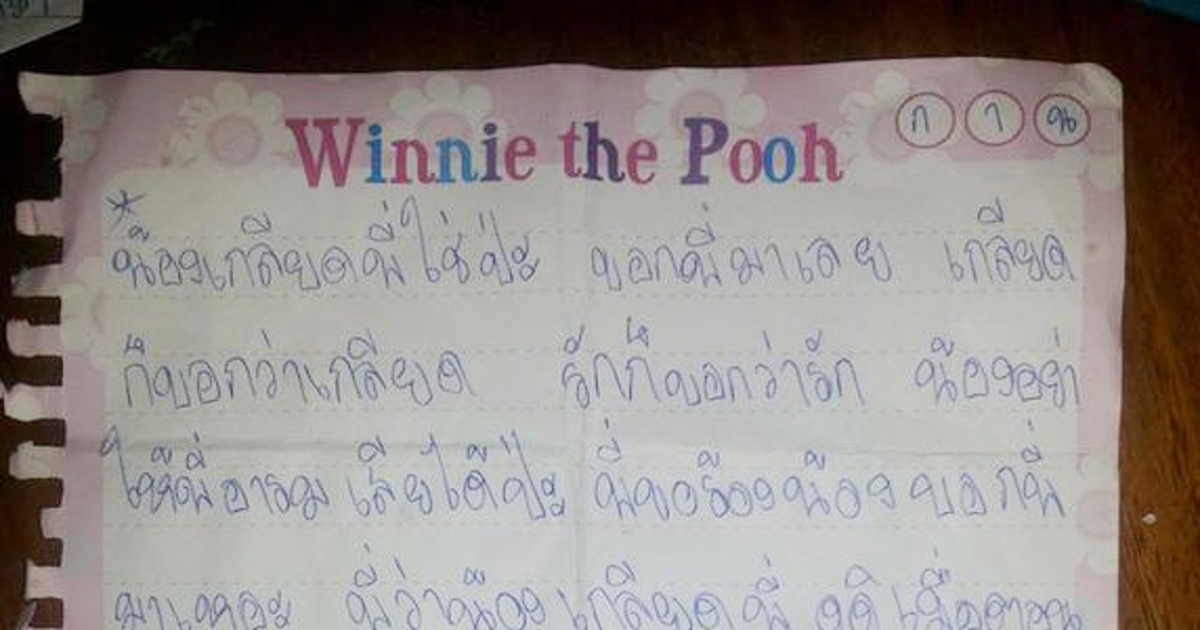 Winnie the Pooh
ก า น
* น้องเกลียดพี่ใช่ป่ะ บอกพี่มาเลย เกลียด
ก็บอกว่าเกลียด รักก็บอกว่ารัก น้องอย่า
ให้พี่อารมเสียได้ป่ะ พี่ขอร้องน้องบอกพี่
มาเหอะ พี่ว่าน้องเกลียดพี่